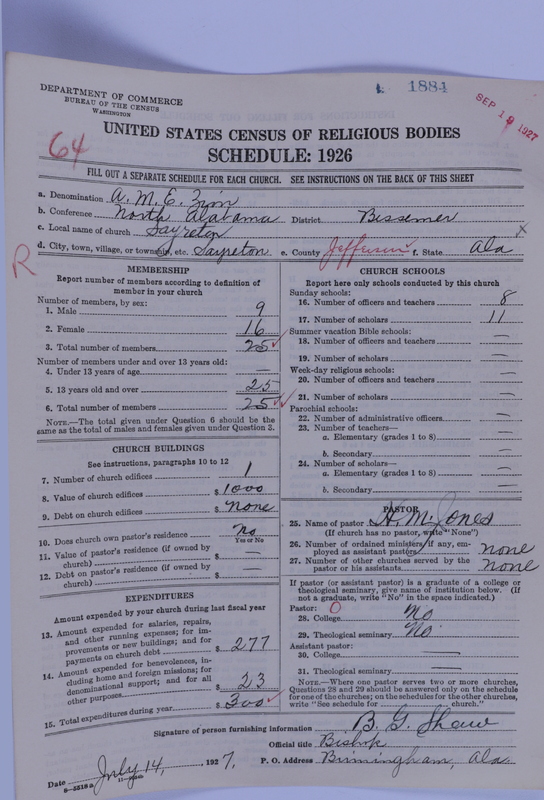 1884
SEP 19 1927
DEPARTMENT OF COMMERCE
BUREAU OF THE CENSUS
WASHINGTON
64
UNITED STATES CENSUS OF RELIGIOUS BODIES
SCHEDULE: 1926
FILL OUT A SEPARATE SCHEDULE FOR EACH CHURCH. SEE INSTRUCTIONS ON THE BACK OF THIS SHEET
a. Denomination A. M. E. Zion
b. Conference North Alabama District Bissemer
c. Local name of church Sayreton
d. City, town, village, or township, etc. Sayreton e. County Jefferson f. State Ala
R
MEMBERSHIP
Report number of members according to definition of
member in your church
Number of members, by sex:
1. Male 9
2. Female 16
3. Total number of members 25
Number of members under and over 13 years old:
4. Under 13 years of age —
5. 13 years old and over 25
6. Total number of members 25
NOTE.—The total given under Question 6 should be
same as the total of males and females given under Question 3.
CHURCH BUILDINGS
See instructions, paragraphs 10 to 12
7. Number of church edifices 1
8. Value of church edifices $ 1000
9. Debt on church edifices $ none
10. Does church own pastor's residence? no
Yes or No
11. Value of pastor's residence (if owned by
church) $ —
12. Debt on pastor's residence (if owned by
church) $ —
EXPENDITURES
Amount expended by your church during last fiscal year
13. Amount expended for salaries, repairs,
and other running expenses; for im-
provements or new buildings; and for
payments on church debt $ 277
14. Amount expended for benevolences, in-
cluding home and foreign missions; for
denominational support; and for all
other purposes $ 23
15. Total expenditures during year $ 300
CHURCH SCHOOLS
Report here only schools conducted by this church
Sunday schools:
16. Number of officers and teachers 8
17. Number of scholars 11
Summer vacation Bible schools:
18. Number of officers and teachers —
19. Number of scholars —
Week-day religious schools:
20. Number of officers and teachers —
21. Number of scholars —
Parochial schools:
22. Number of administrative officers —
23. Number of teachers—
a. Elementary (grades 1 to 8) —
b. Secondary —
24. Number of scholars—
a. Elementary (grades 1 to 8) —
b. Secondary —
PASTOR
25. Name of pastor H. M. Jones
(If church has no pastor, write "None")
26. Number of ordained ministers, if any, em-
ployed as assistant pastors none
27. Number of other churches served by the
pastor or his assistants none
If pastor (or assistant pastor) is a graduate of a college or
theological seminary, give name of institution below. (If
not a graduate, write "No" in the space indicated.)
Pastor: O
28. College No
29. Theological seminary No
Assistant pastor:
30. College —
31. Theological seminary —
NOTE.—Where one pastor serves two or more churches,
Questions 28 and 29 should be answered only on the schedule
for one of the churches; on the schedules for the other churches,
write "See schedule for church."
Signature of person furnishing information B. G. Shaw
Official title Bishop
Date July 14, 1927. P. O. Address Birmingham, Ala.